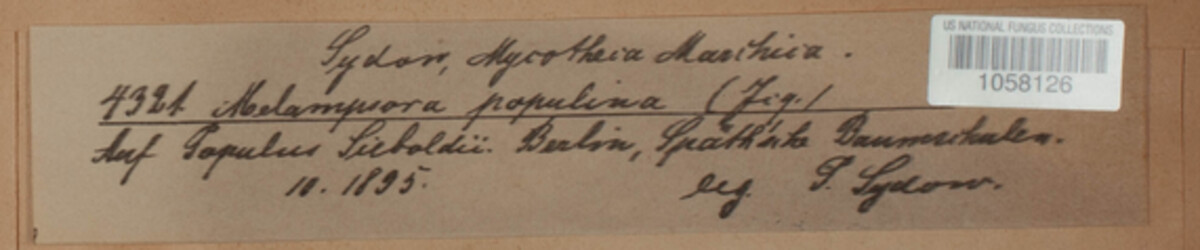 Sydow, Mycotheca Marchica.
US NATIONAL FUNGUS COLLECTIONS
1058126
4321 Melampsora populina (Jcq.)
Auf Populus Sieboldii. Berlin, Späth'sche Baumschulen.
10. 1895.
leg. P. Sydow.